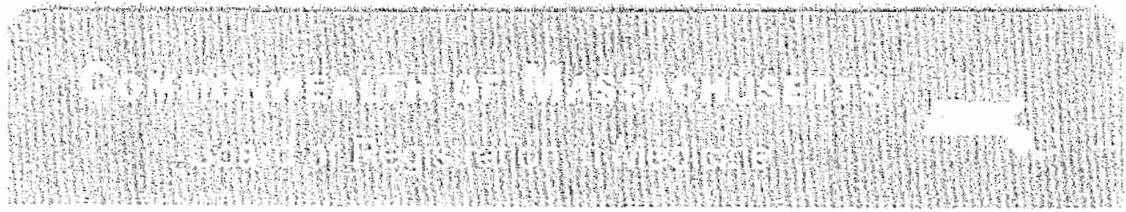 COMMONWEALTH OF MASSACHUSETTS
Board of Registration in Medicine